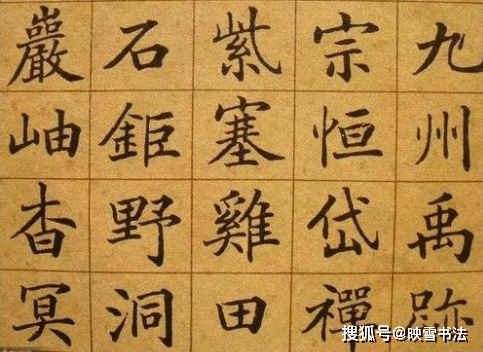 九州禹跡
宗恒岱禪
紫塞雞田
石鉅野洞
巖岫杳冥
搜狐号@映雪书法